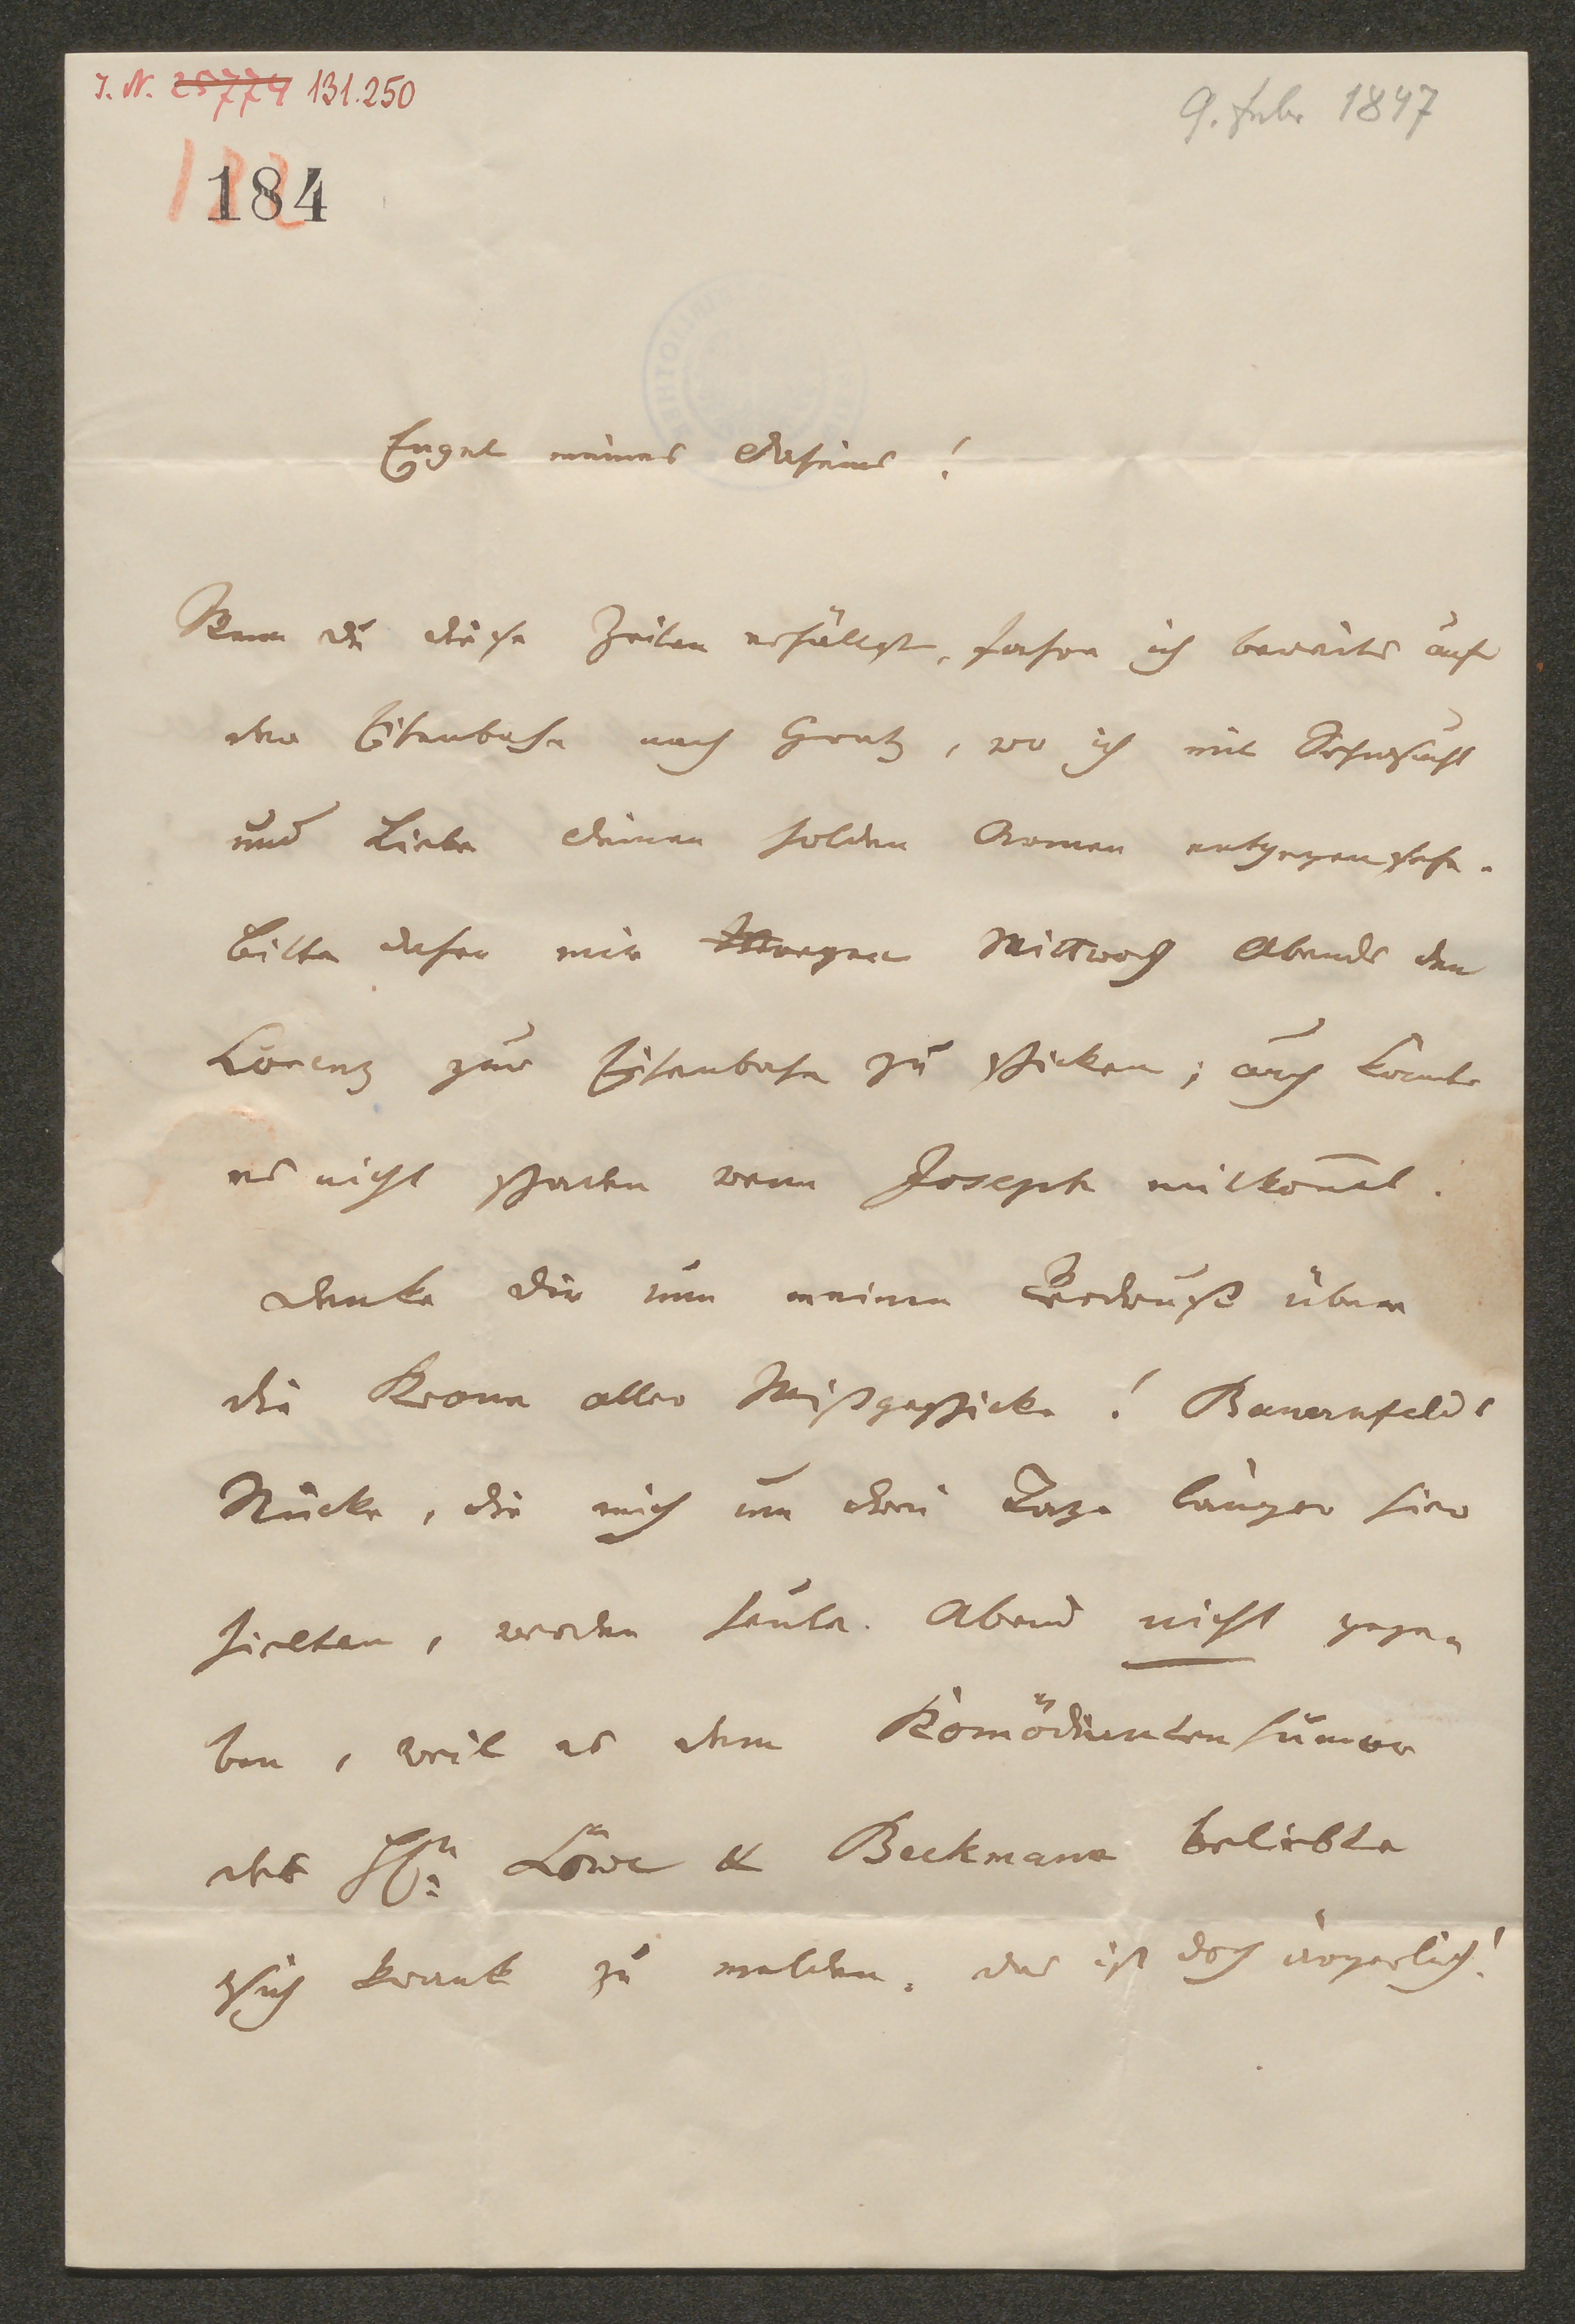 I. N. 25774 131.250
9. Febr 1847
184
Engel meines Daseins!
Wenn du diese Zeilen erhältst, fahre ich bereits auf
der Eisenbahn nach Gratz, wo ich mit Sehnsucht
und Liebe deinen holden Armen entgegensehe.
Bitte daher mir Morgen Mittwoch Abends den
Lorenz zur Eisenbahn zu schicken; auch könnte
es nicht schaden wenn Joseph mitkom̄t.
Denke dir nun meinen Verdruß über
die Krone aller Mißgeschicke! Bauernfelds
Stücke, die mich um drei Tage länger hier
hielten, werden heute Abend nicht gege
ben, weil es dem Komödiantenhumor
des H̅n̅ Löwe & Beckmann beliebte
sich krank zu melden. das ist doch ärgerlich!